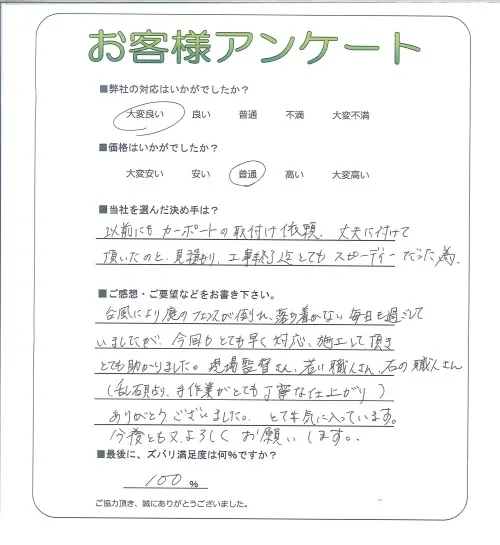 お客様アンケート
■弊社の対応はいかがでしたか？
大変良い 良い 普通 不満 大変不満
■価格はいかがでしたか？
大変安い 安い 普通 高い 大変高い
■当社を選んだ決め手は？
以前にもカーポートの取付け依頼、丈夫に付けて
頂いたのと、見積り、工事終了迄とてもスピーディーだった為。
■ご感想・ご要望などをお書き下さい。
台風により庭のフェンスが倒れ、落ち着かない毎日を過ごして
いましたが、今回もとても早く対応、施工して頂き
とても助かりました。現場監督さん、若い職人さん、石の職人さん
(乱石貼り、手作業がとても丁寧な仕上がり)
ありがとうございました。とても気に入っています。
今後とも又よろしくお願いします。
■最後に、ズバリ満足度は何%ですか？
100 %
ご協力頂き、誠にありがとうございました。